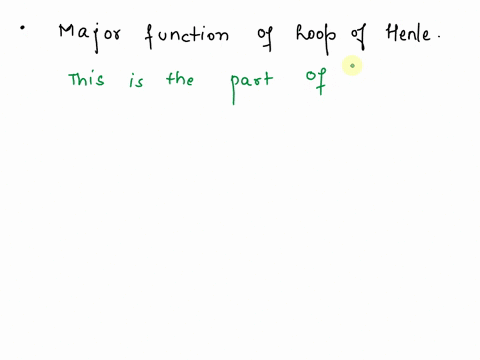 • Major function of Loop of Henle.
This is the part of